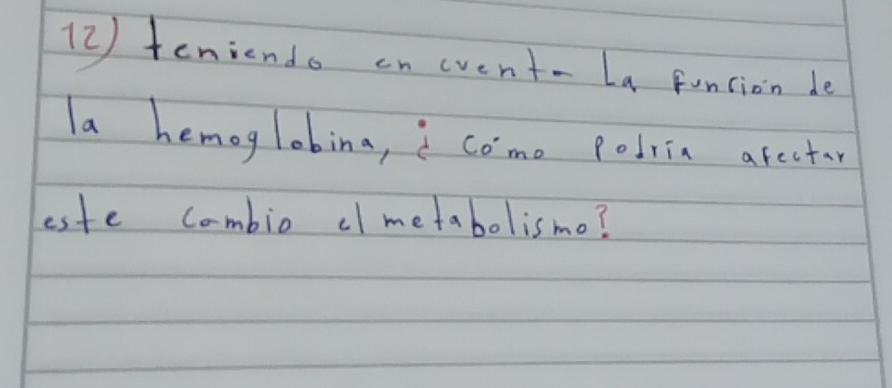 12) teniendo en cuenta La función de
la hemoglobina, ¿ cómo podría afectar
este cambio el metabolismo?